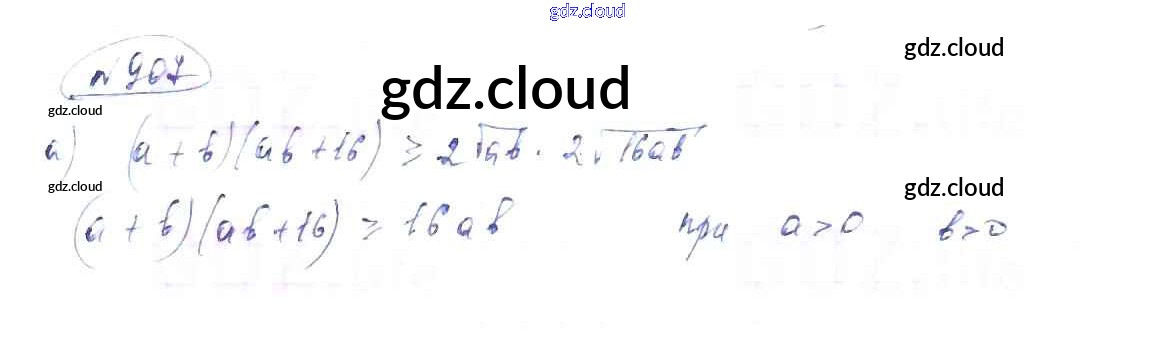 gdz.cloud
gdz.cloud
№ 907
gdz.cloud
gdz.cloud
а) (a + b)(ab + 16) ≥ 2√ab · 2√16ab
gdz.cloud
gdz.cloud
(a + b)(ab + 16) ≥ 16ab при a > 0 b > 0